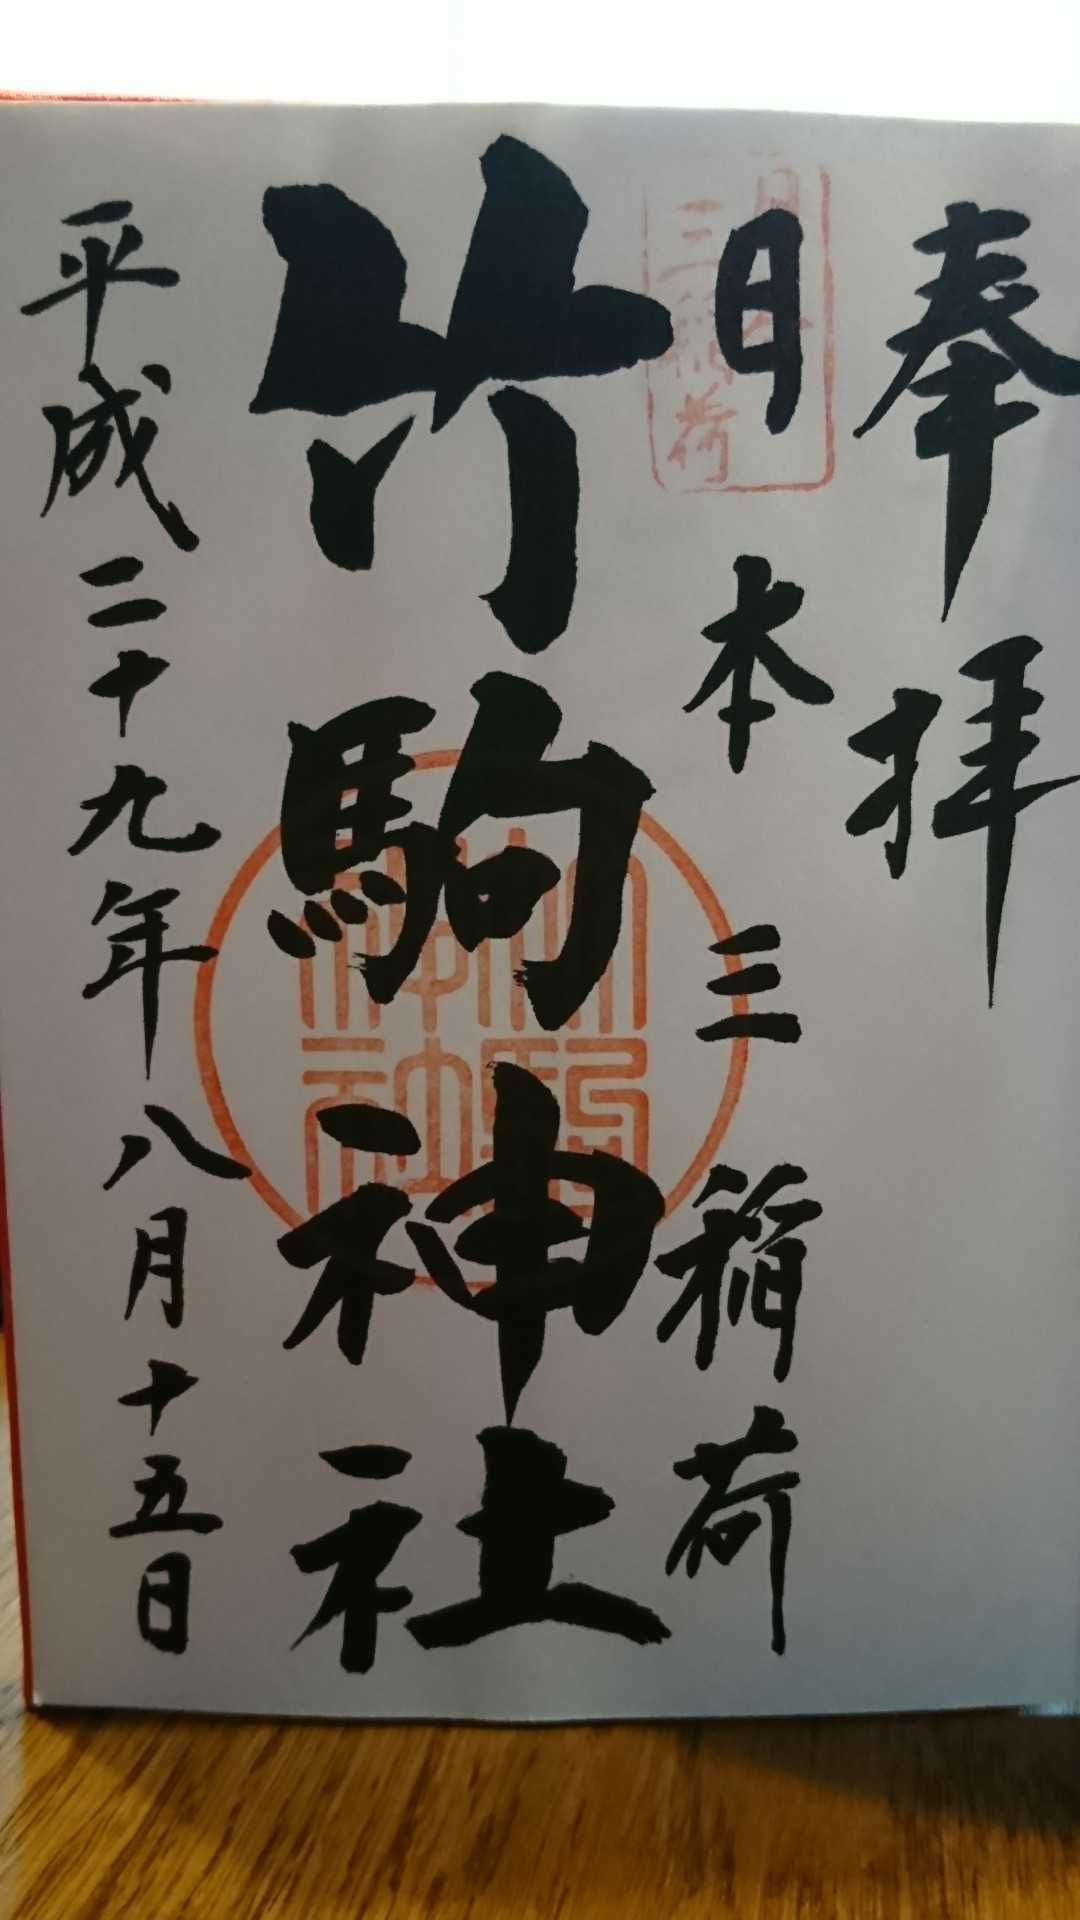 奉拝
日本三稲荷
日本三稲荷
竹駒神社
竹駒神社
平成二十九年八月十五日